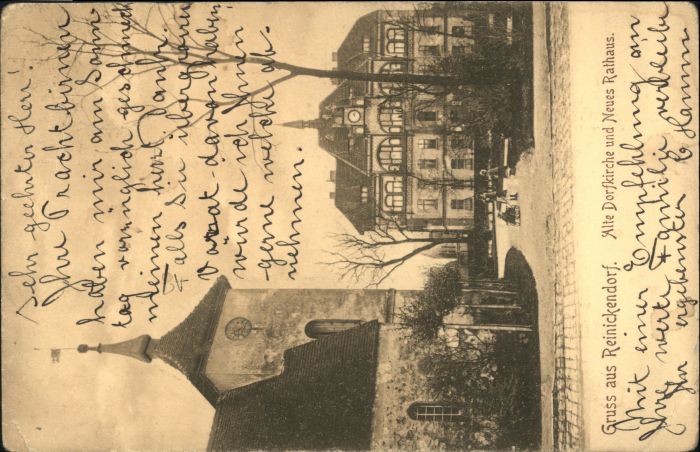 Sehr geehrter Herr!
Ihre Prachtbirnen
haben mir am Sonn-
tag vorzüglich geschmeckt
meinen herzl. Dank.
Falls Sie überhaupt
Vorrat davon haben,
würde ich Ihnen
gerne welche ab-
nehmen.
Gruss aus Reinickendorf. Alte Dorfkirche und Neues Rathaus.
Mit einer Empfehlung an
Ihre werte Familie verbleibe
Ihr ergebenster